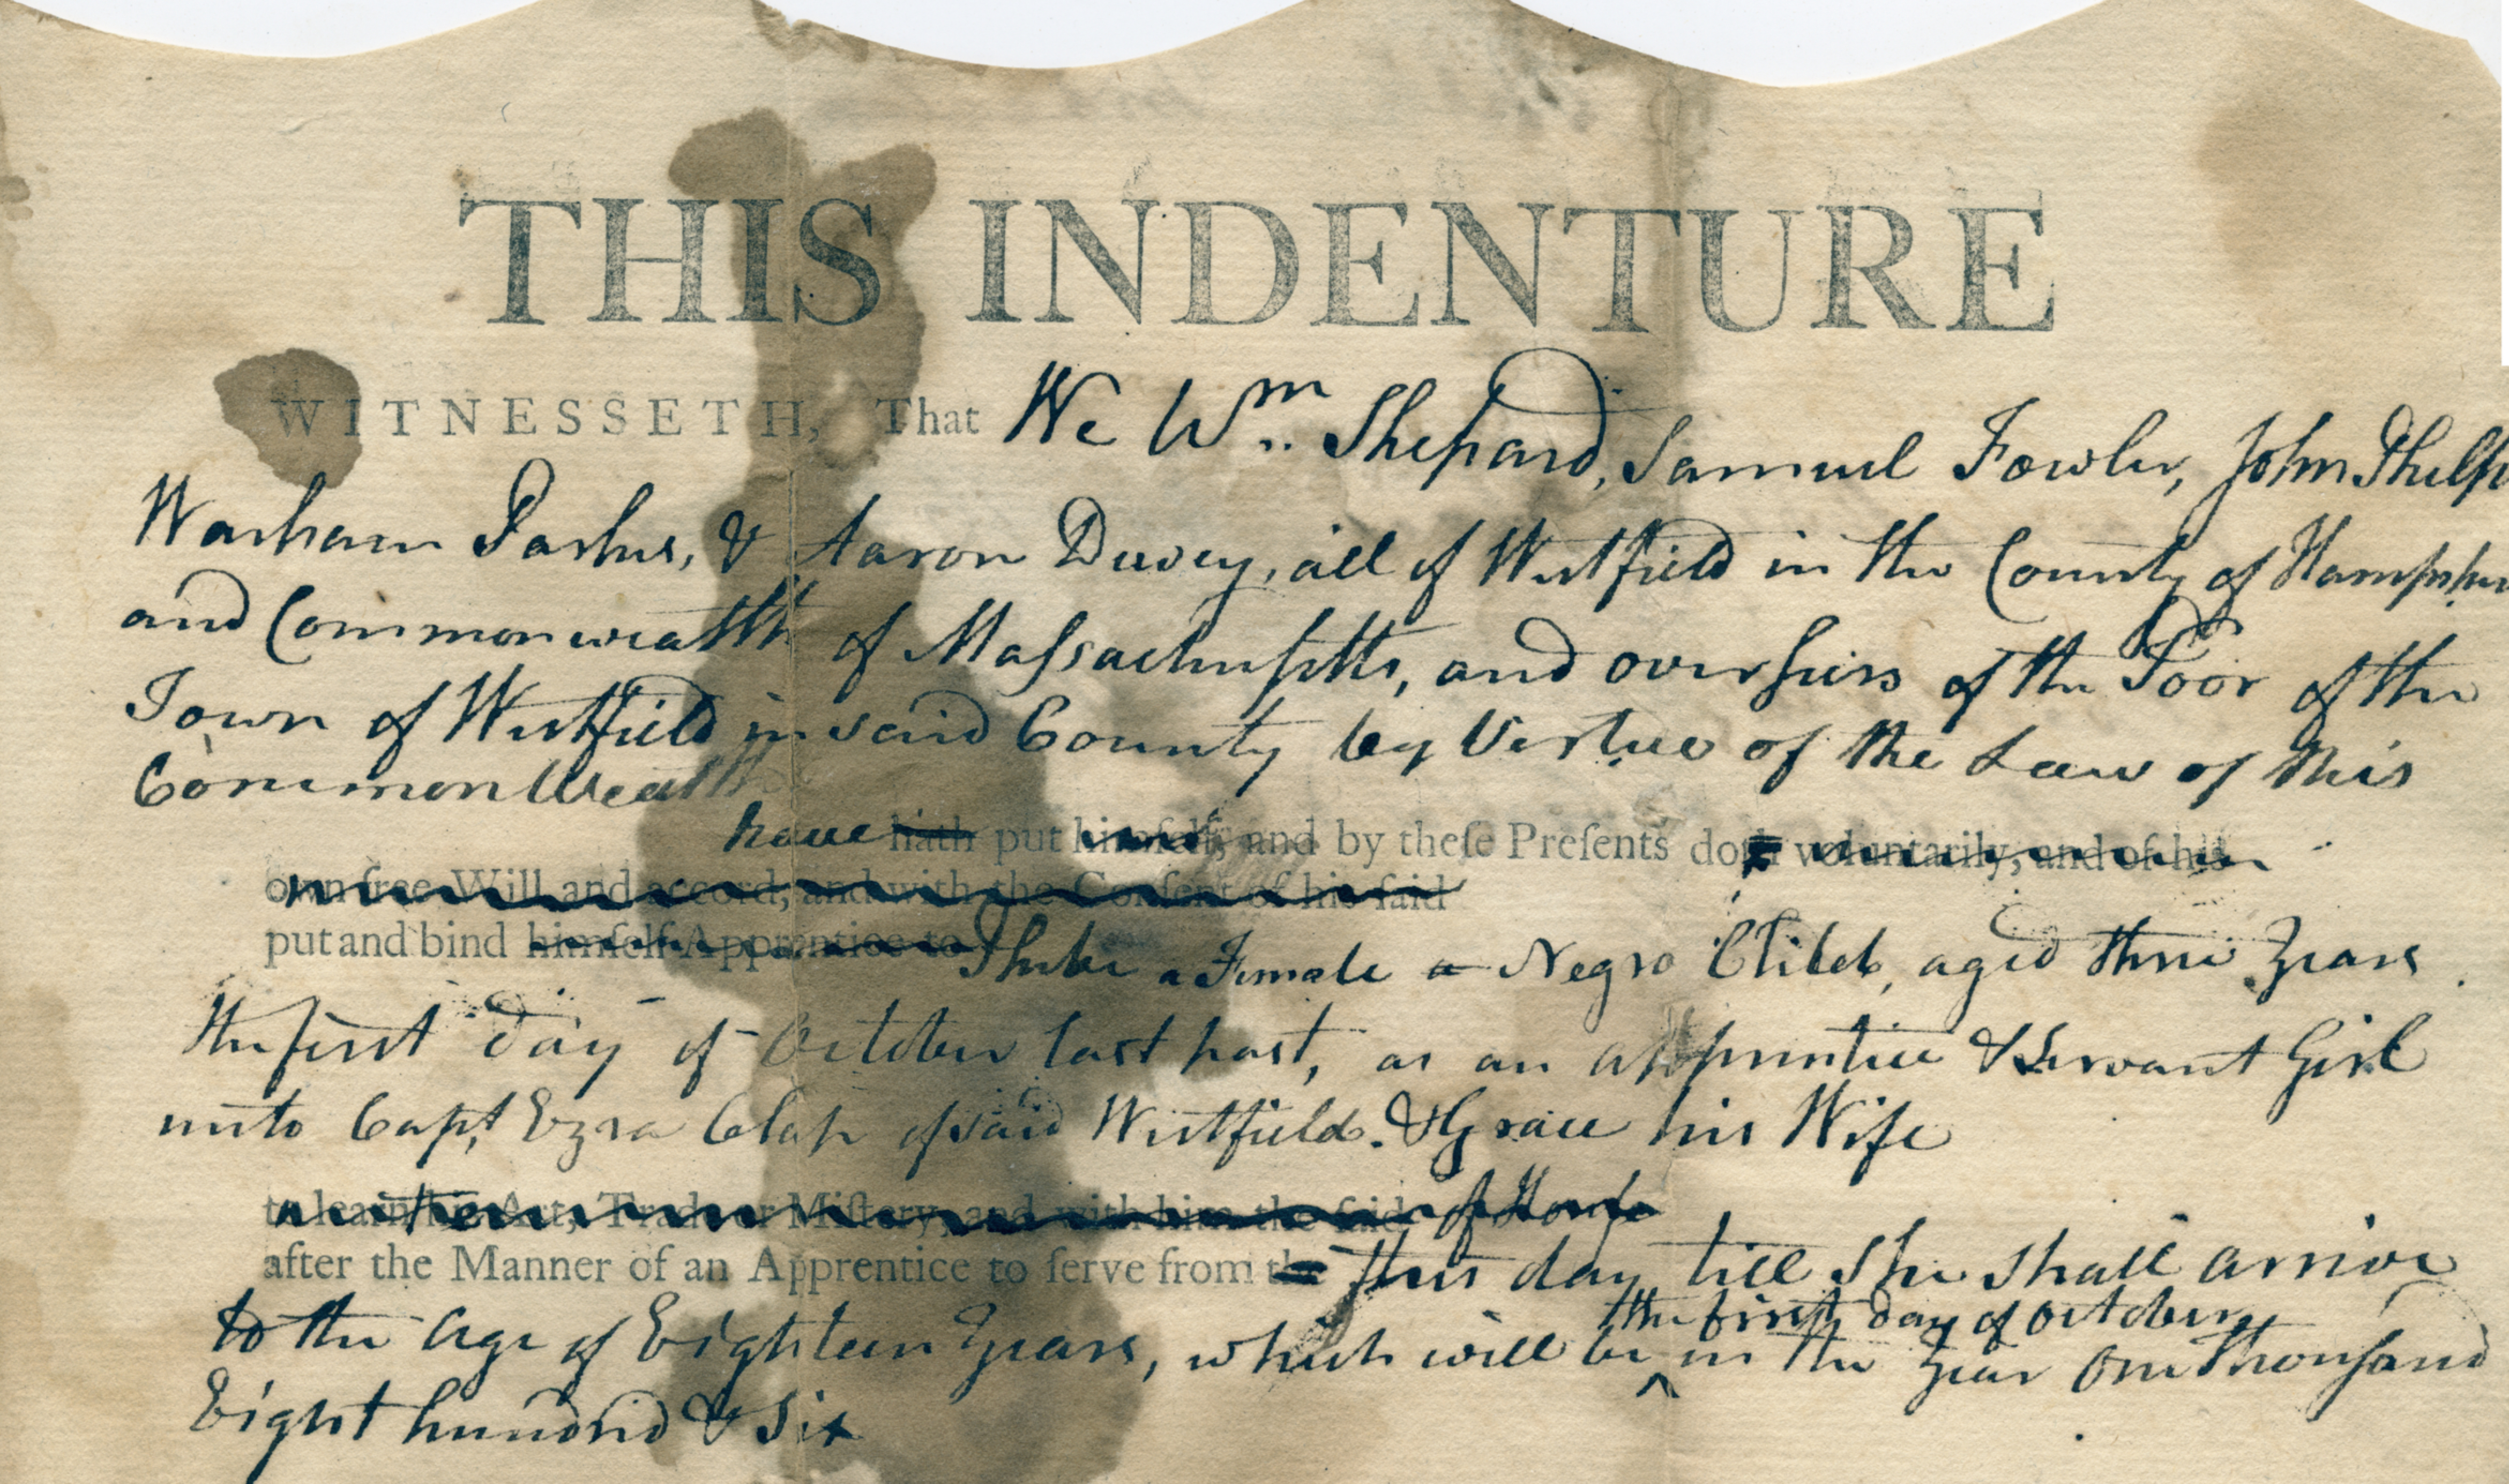 THIS INDENTURE
WITNESSETH, That We Wm Shepard, Samuel Fowler, John Phelps
Warham Parks, & Aaron Dewey, all of Westfield in the County of Hampshire
and Commonwealth of Maſsachusetts, and overſeers of the Poor of the
Town of Westfield in said County by Vertue of the Law of this
CommonWealth
have hath put himſelf, and by theſe Preſents doth voluntarily, and of his
own free Will and accord, and with the Conſent of his ſaid
put and bind himſelf Apprentice to Phebe a Female a Negro Child, aged three Years
the first day of October last past, as an apprentice & Servant Girl
unto Capt Ezra Clap of said Westfield. & Grace his Wife
to learn his Art, Trade or Miſtery, and with him the ſaid
after the Manner of an Apprentice to ſerve from the this day till She shall arrive
to the Age of Eighteen Years, which will be ^ in the Year One Thouſand
the first day of October
Eight hundred & Six